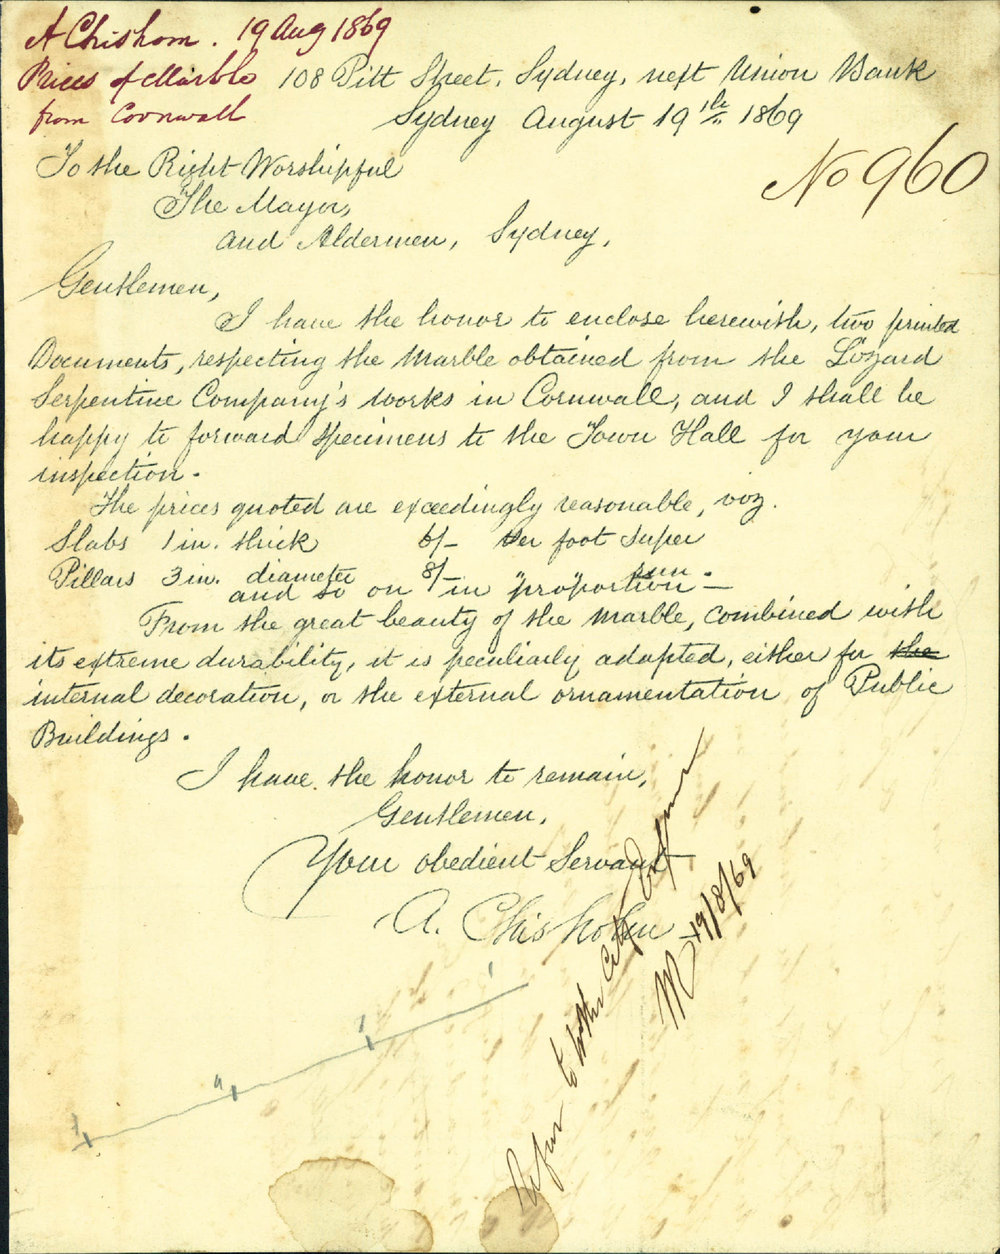 A Chishom. 19 Aug 1869
Prices of Marble
from Cornwall
108 Pitt Street, Sydney, next Union Bank
Sydney August 19th 1869
No 960
To the Right Worshipful
The Mayor,
and Aldermen, Sydney,
Gentlemen,
I have the honor to enclose herewith, two printed
Documents, respecting the Marble obtained from the Lizard
Serpentine Company's works in Cornwall, and I shall be
happy to forward specimens to the Town Hall for your
inspection.
The prices quoted are exceedingly reasonable, viz.
Slabs 1 in. thick 6/- per foot super
Pillars 3 in. diameter 8/- " " run.
and so on in proportion—
From the great beauty of the Marble, combined with
its extreme durability, it is peculiarly adapted, either for the
internal decoration, or the external ornamentation of Public
Buildings.
I have the honor to remain,
Gentlemen,
Your obedient Servant
A. Chisholm
Refer to the City
19/8/69